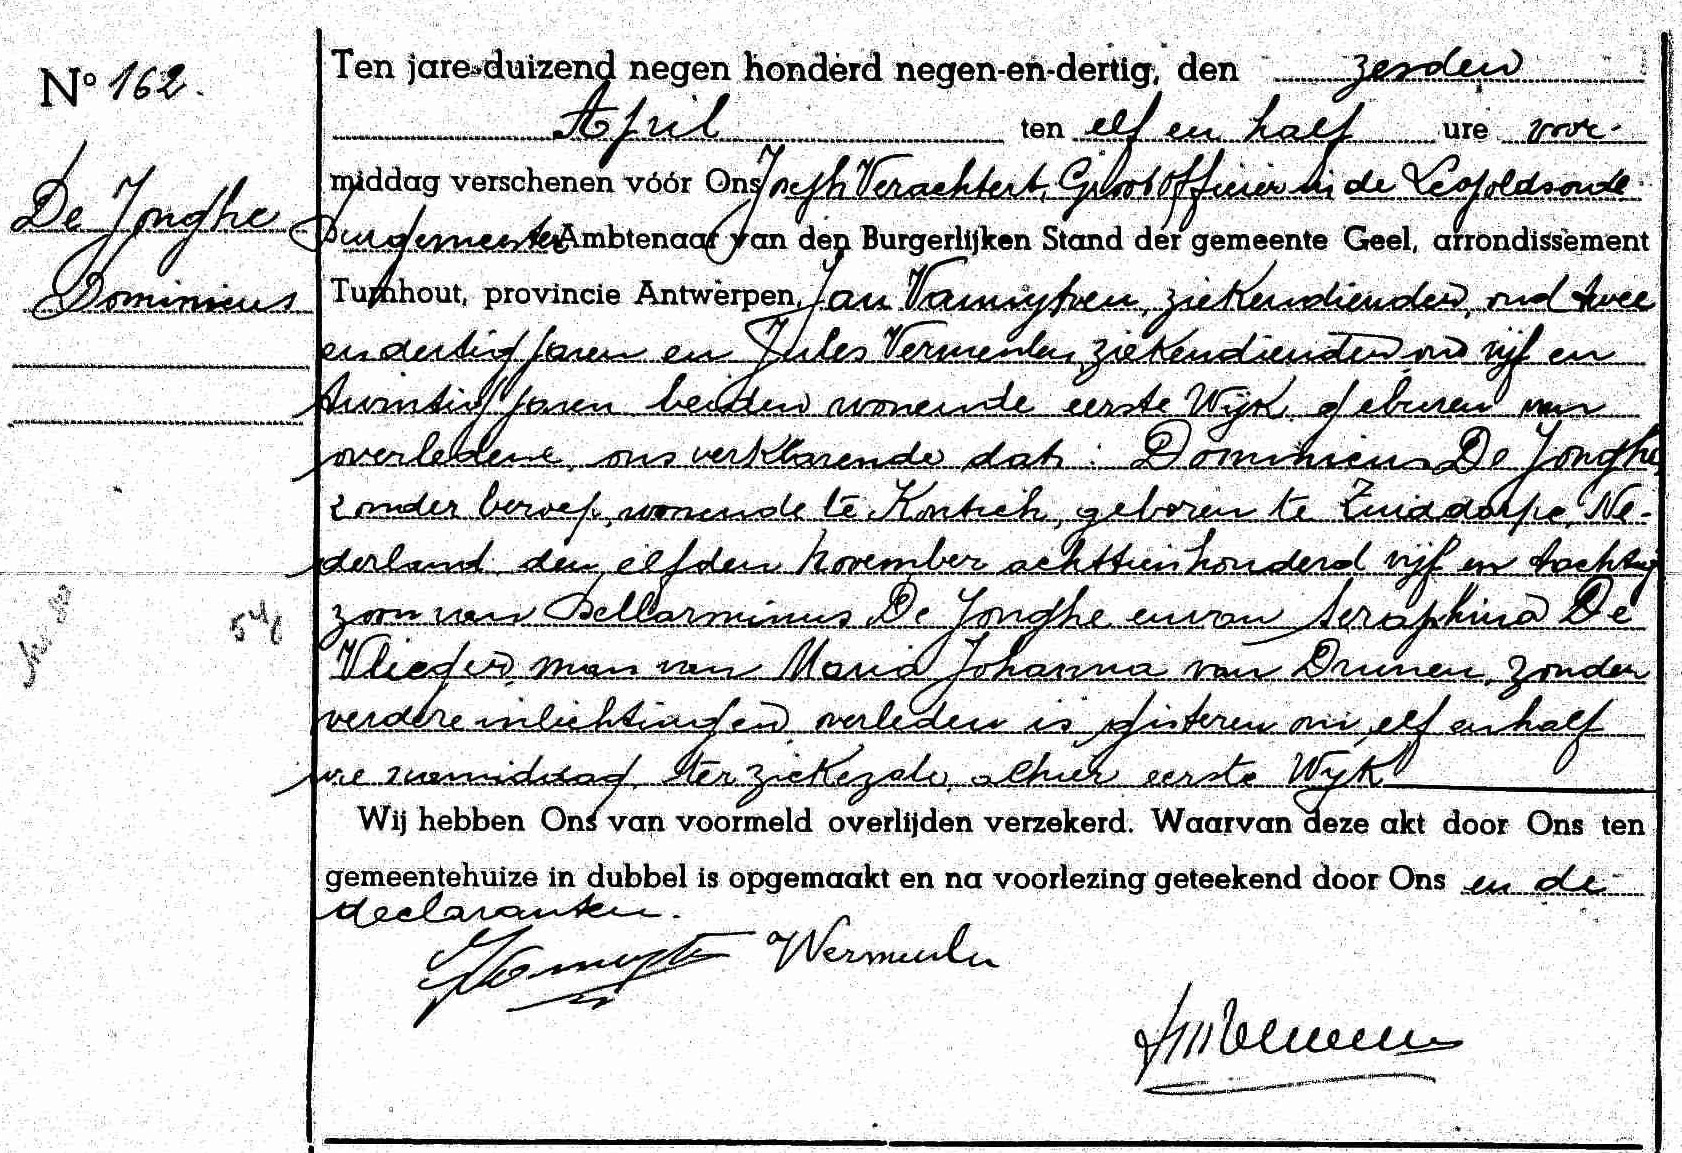 Nº 162.
De Jonghe
Dominicus
Ten jare duizend negen honderd negen-en-dertig, den zesden
April ten elf en half ure voor-
middag verschenen vóór Ons Joseph Verachtert, Grootofficier in de Leopoldsorde
Burgemeester Ambtenaar van den Burgerlijken Stand der gemeente Geel, arrondissement
Turnhout, provincie Antwerpen, Jan ziekendiender, oud twee
en dertig jaren en Jules Vermeulen, ziekendiender oud vijf en
twintig jaren beiden wonende eerste Wijk geburen van
overledene, ons verklarende dat: Dominicus De Jonghe,
zonder beroep, wonende te Kontich, geboren te Zuiddorpe, Ne-
derland den elfden November achttienhonderd vijf en tachtig
zoon van Bellarminus De Jonghe en van Seraphina De
Vlieger, man van Maria Johanna van Drunen, zonder
verdere inlichtingen, overleden is gisteren om elf en half
ure ter ziekezale, alhier eerste Wijk
Wij hebben Ons van voormeld overlijden verzekerd. Waarvan deze akt door Ons ten
gemeentehuize in dubbel is opgemaakt en na voorlezing geteekend door Ons en de
declaranten.
Vermeulen